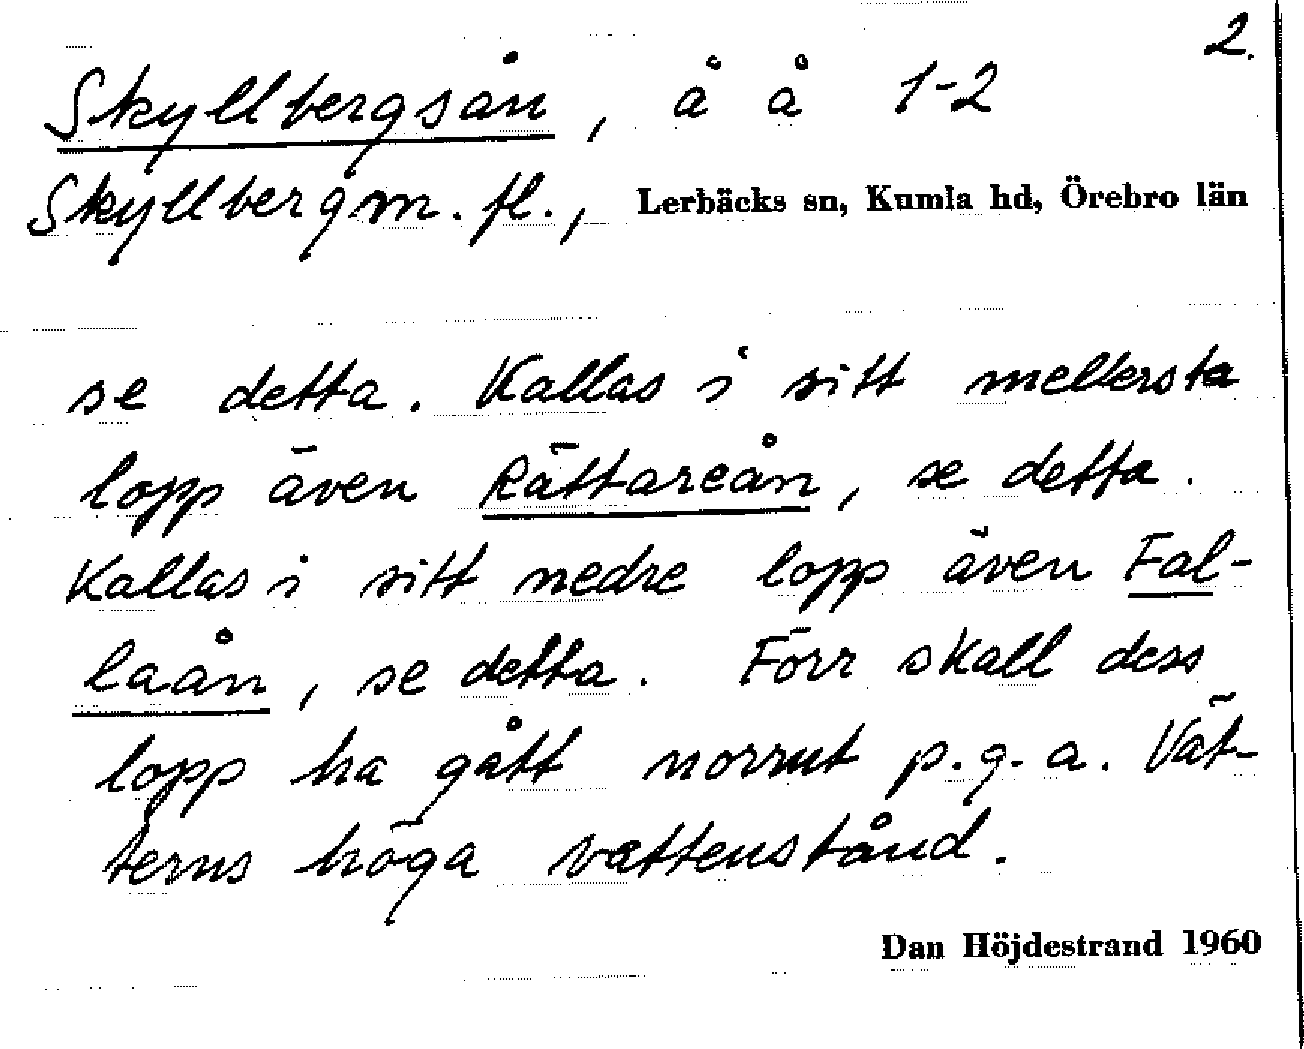 2.
Skyllbergsån, å å 1-2
Skyllberg m. fl., Lerbäcks sn, Kumla hd, Örebro län
se detta. Kallas i sitt mellersta
lopp även Rättareån, se detta.
Kallas i sitt nedre lopp även Fal-
laån, se detta. Förr skall dess
lopp ha gått norrut p.g.a. Vät-
terns höga vattenstånd.
Dan Höjdestrand 1960